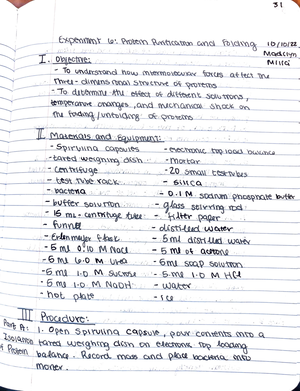 31
Experiment 6: Protein Purification and Folding
10/10/22
Madilyn
I. Objective:
- To understand how intermolecular forces affect the
three-dimensional structure of proteins
- To determine the effect of different solutions,
temperature changes, and mechanical shock on
the folding/unfolding of proteins
II. Materials and Equipment:
- Spirulina capsules - electronic top load balance
- tared weighing dish - mortar
- centrifuge - 20 small test tubes
- test tube rack - silica
- bacteria - 0.1 M sodium phosphate buffer
- buffer solution - glass stirring rod
- 15 mL centrifuge tubes - filter paper
- funnel - distilled water
- Erlenmeyer flask - 5 ml distilled water
- 5 ml 0.10 M NaCl - 5 ml of acetone
- 5 ml 6.0 M Urea - 5 ml soap solution
- 5 ml 1.0 M sucrose - 5 ml 1.0 M HCl
- 5 ml 1.0 M NaOH - water
- hot plate - ice
III Procedure:
Part A: 1. Open Spirulina capsule, pour contents into a
Isolation tared weighing dish on electronic top loading
of Protein balance. Record mass and place bacteria into